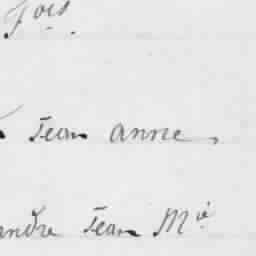 Fois.
Jean anne,
andre Jean Mie